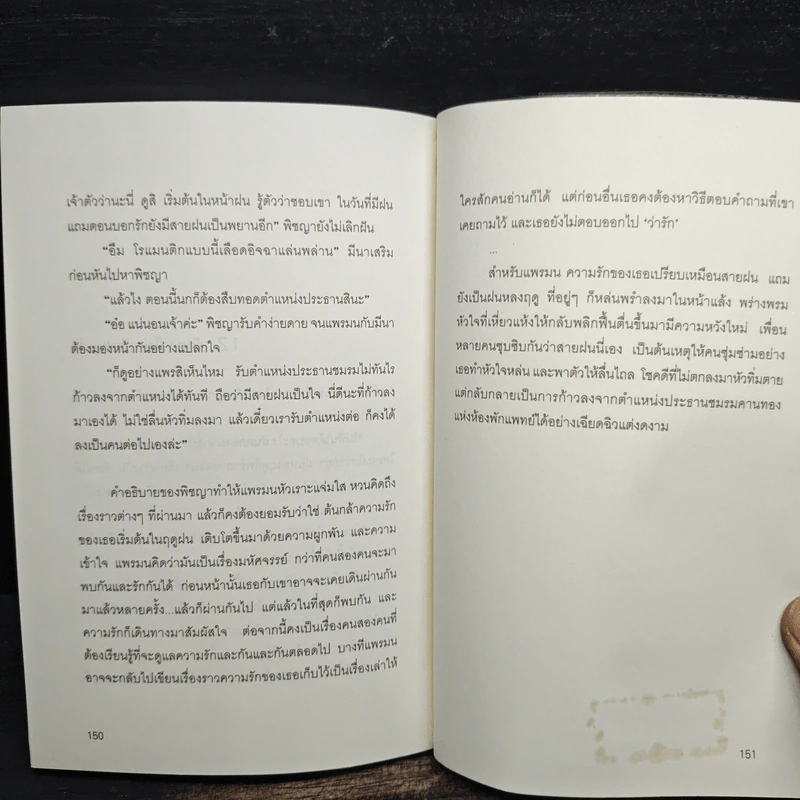 เจ้าตัวว่านะนี่ ดูสิ เริ่มต้นในหน้าฝน รู้ตัวว่าชอบเขา ในวันที่มีฝน
แถมตอนบอกรักยังมีสายฝนเป็นพยานอีก” พิชญายังไม่เลิกฝัน
“อืม โรแมนติกแบบนี้เลือดอิจฉาแล่นพล่าน” มีนาเสริม
ก่อนหันไปหาพิชญา
“แล้วไง ตอนนี้นกก็ต้องสืบทอดตำแหน่งประธานสินะ”
“อ๋อ แน่นอนเจ้าค่ะ” พิชญารับคำง่ายดาย จนแพรมนกับมีนา
ต้องมองหน้ากันอย่างแปลกใจ
“ก็ดูอย่างแพรสิเห็นไหม รับตำแหน่งประธานชมรมไม่ทันไร
ก้าวลงจากตำแหน่งได้ทันที ถือว่ามีสายฝนเป็นใจ นี่ดีนะที่ก้าวลง
มาเองได้ ไม่ใช่ลื่นหัวทิ่มลงมา แล้วเดี๋ยวเรารับตำแหน่งต่อ ก็คงได้
ลงเป็นคนต่อไปเองล่ะ”
คำอธิบายของพิชญาทำให้แพรมนหัวเราะแจ่มใส หวนคิดถึง
เรื่องราวต่างๆ ที่ผ่านมา แล้วก็คงต้องยอมรับว่าใช่ ต้นกล้าความรัก
ของเธอเริ่มต้นในฤดูฝน เติบโตขึ้นมาด้วยความผูกพัน และความ
เข้าใจ แพรมนคิดว่ามันเป็นเรื่องมหัศจรรย์ กว่าที่คนสองคนจะมา
พบกันและรักกันได้ ก่อนหน้านั้นเธอกับเขาอาจจะเคยเดินผ่านกัน
มาแล้วหลายครั้ง...แล้วก็ผ่านกันไป แต่แล้วในที่สุดก็พบกัน และ
ความรักก็เดินทางมาสัมผัสใจ ต่อจากนี้คงเป็นเรื่องคนสองคนที่
ต้องเรียนรู้ที่จะดูแลความรักและกันและกันตลอดไป บางทีแพรมน
อาจจะกลับไปเขียนเรื่องราวความรักของเธอเก็บไว้เป็นเรื่องเล่าให้
150
ใครสักคนอ่านก็ได้ แต่ก่อนอื่นเธอคงต้องหาวิธีตอบคำถามที่เขา
เคยถามไว้ และเธอยังไม่ตอบออกไป ‘ว่ารัก’
...
สำหรับแพรมน ความรักของเธอเปรียบเหมือนสายฝน แถม
ยังเป็นฝนหลงฤดู ที่อยู่ๆ ก็หล่นพรำลงมาในหน้าแล้ง พร่างพรม
หัวใจที่เหี่ยวแห้งให้กลับพลิกฟื้นตื่นขึ้นมามีความหวังใหม่ เพื่อน
หลายคนซุบซิบกันว่าสายฝนนี่เอง เป็นต้นเหตุให้คนซุ่มซ่ามอย่าง
เธอทำหัวใจหล่น และพาตัวให้ลื่นไถล โชคดีที่ไม่ตกลงมาหัวทิ่มตาย
แต่กลับกลายเป็นการก้าวลงจากตำแหน่งประธานชมรมคานทอง
แห่งห้องพักแพทย์ได้อย่างเฉียดฉิวแต่งดงาม
151